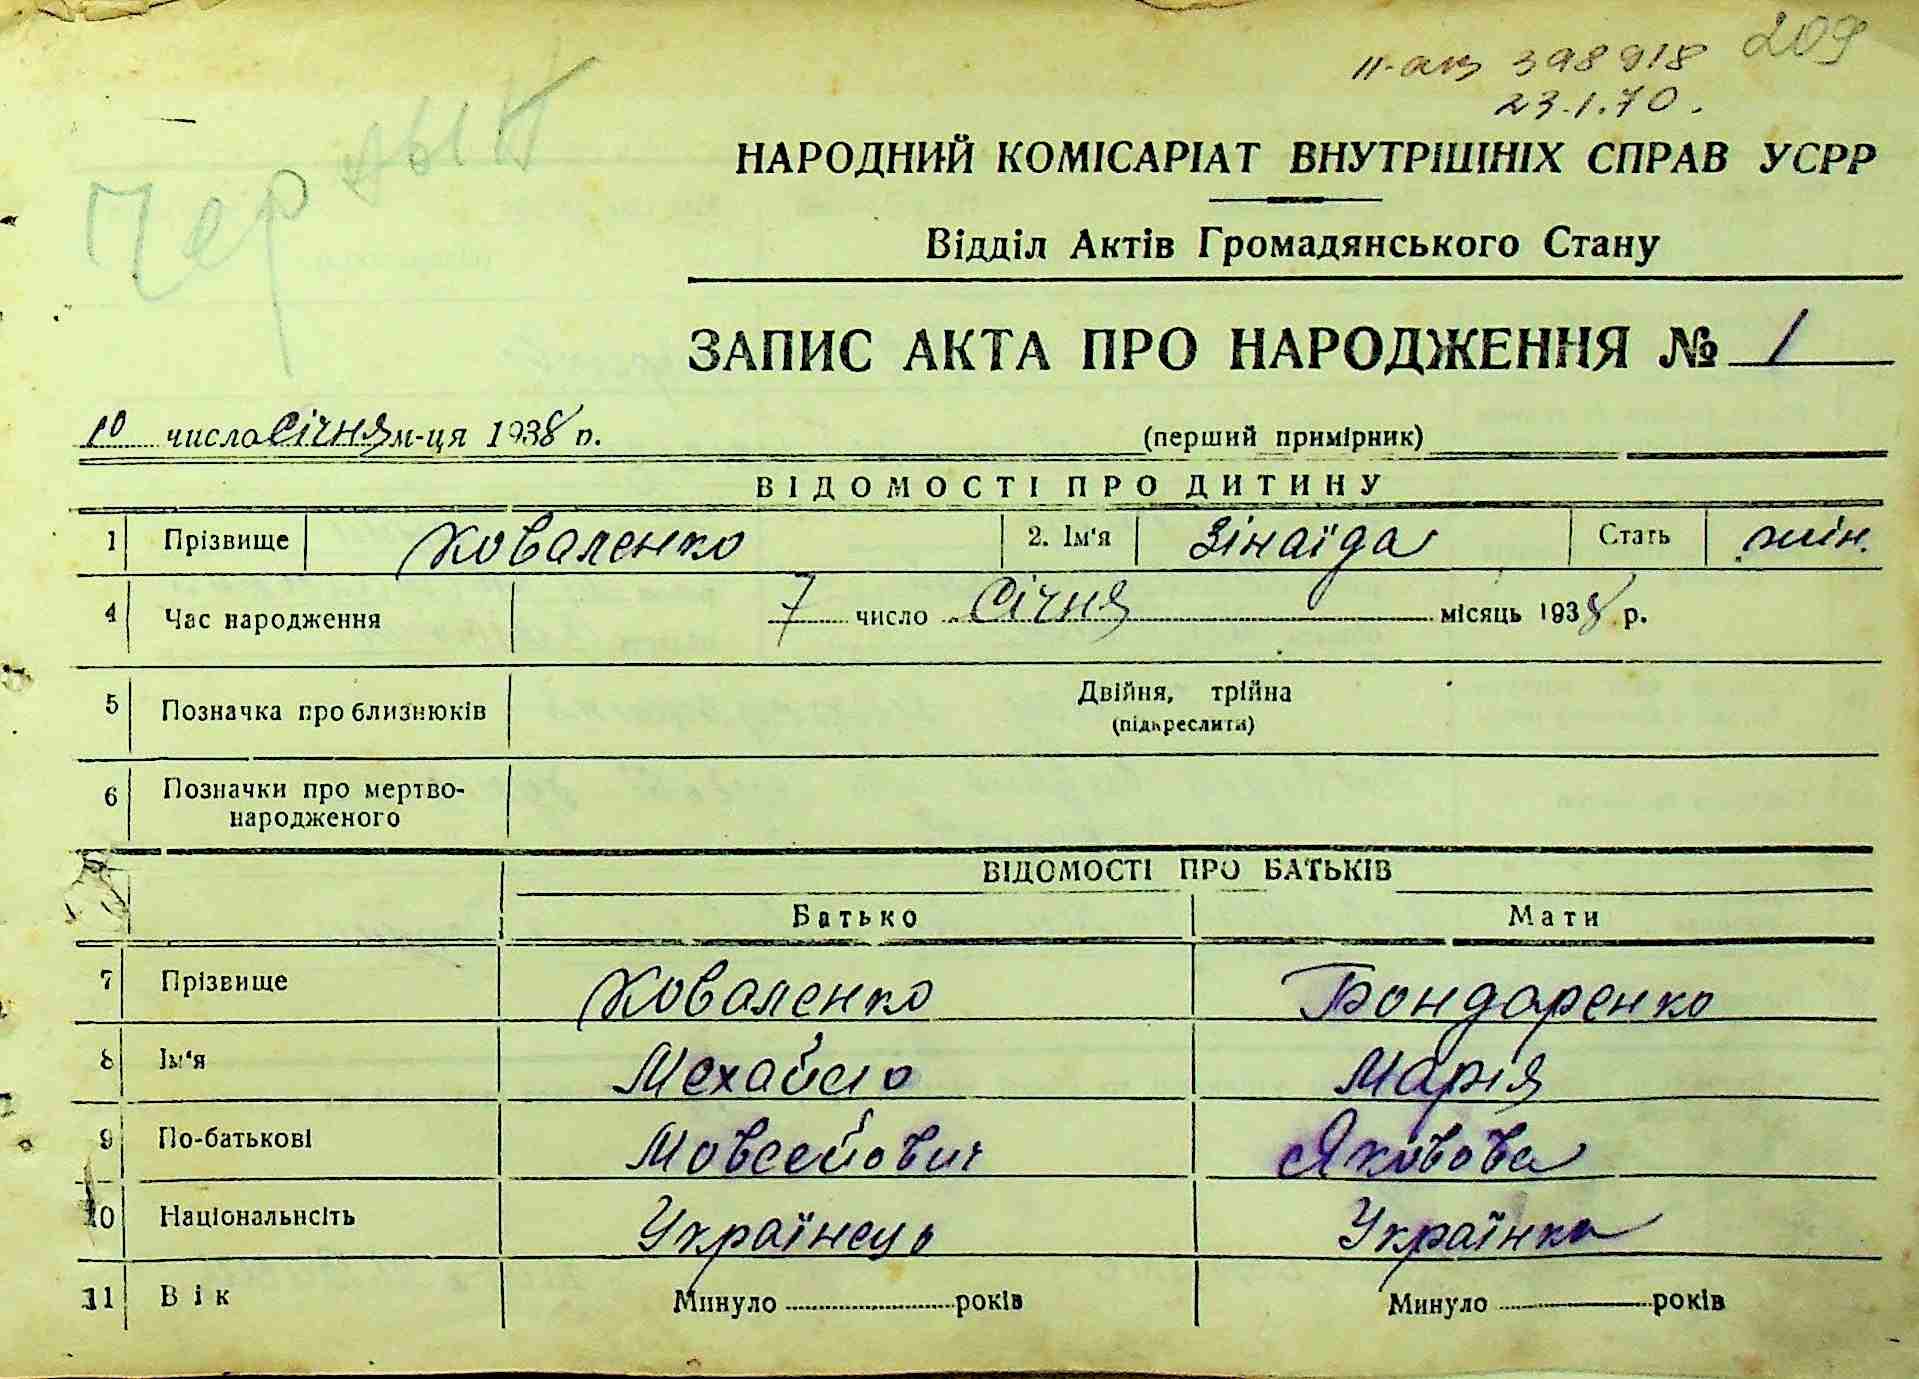 209
II-ак 398918
23.1.70.
НАРОДНИЙ КОМІСАРІАТ ВНУТРІШНІХ СПРАВ УСРР
Відділ Актів Громадянського Стану
ЗАПИС АКТА ПРО НАРОДЖЕННЯ № 1
10 число січня м-ця 1938 р. (перший примірник)
ВІДОМОСТІ ПРО ДИТИНУ
1 Прізвище Коваленко 2. Ім'я Зінаїда Стать жін.
4 Час народження 7 число Січня місяць 1938 р.
5 Позначка про близнюків Двійня, трійна
(підкреслити)
6 Позначки про мертво-
народженого
ВІДОМОСТІ ПРО БАТЬКІВ
Батько Мати
7 Прізвище Коваленко Бондаренко
8 Ім'я Мехайло Марія
9 По-батькові Мовсейович Яковова
10 Національнсіть Українець Українка
11 Вік Минуло ........ років Минуло ........ років